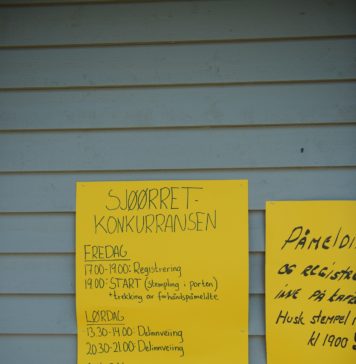 SJØØRRET-
KONKURRANSEN
FREDAG
17.00-19.00: Registrering
19.00: START (stempling i porten)
+ trekking av forhåndspåmeldte.
LØRDAG
13.30-14.00: Delinnveiing
20.30-21.00: Delinnveiing
PÅMELDI
OG REGISTRE
INNE PÅ
Husk stempel i
kl 1900